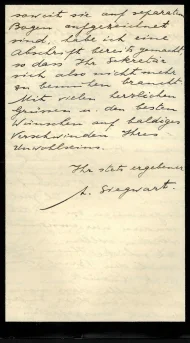 soweit sie auf separaten
Bogen aufgezeichnet
sind, habe ich eine
Abschrift bereits gemacht,
so dass Ihr Sekretär
sich also nicht mehr
zu bemühen braucht.
Mit vielen herzlichen
Grüssen u. den besten
Wünschen auf baldiges
Verschwinden Ihres
Unwohlseins.
Ihr stets ergebener
A. Siegwart.